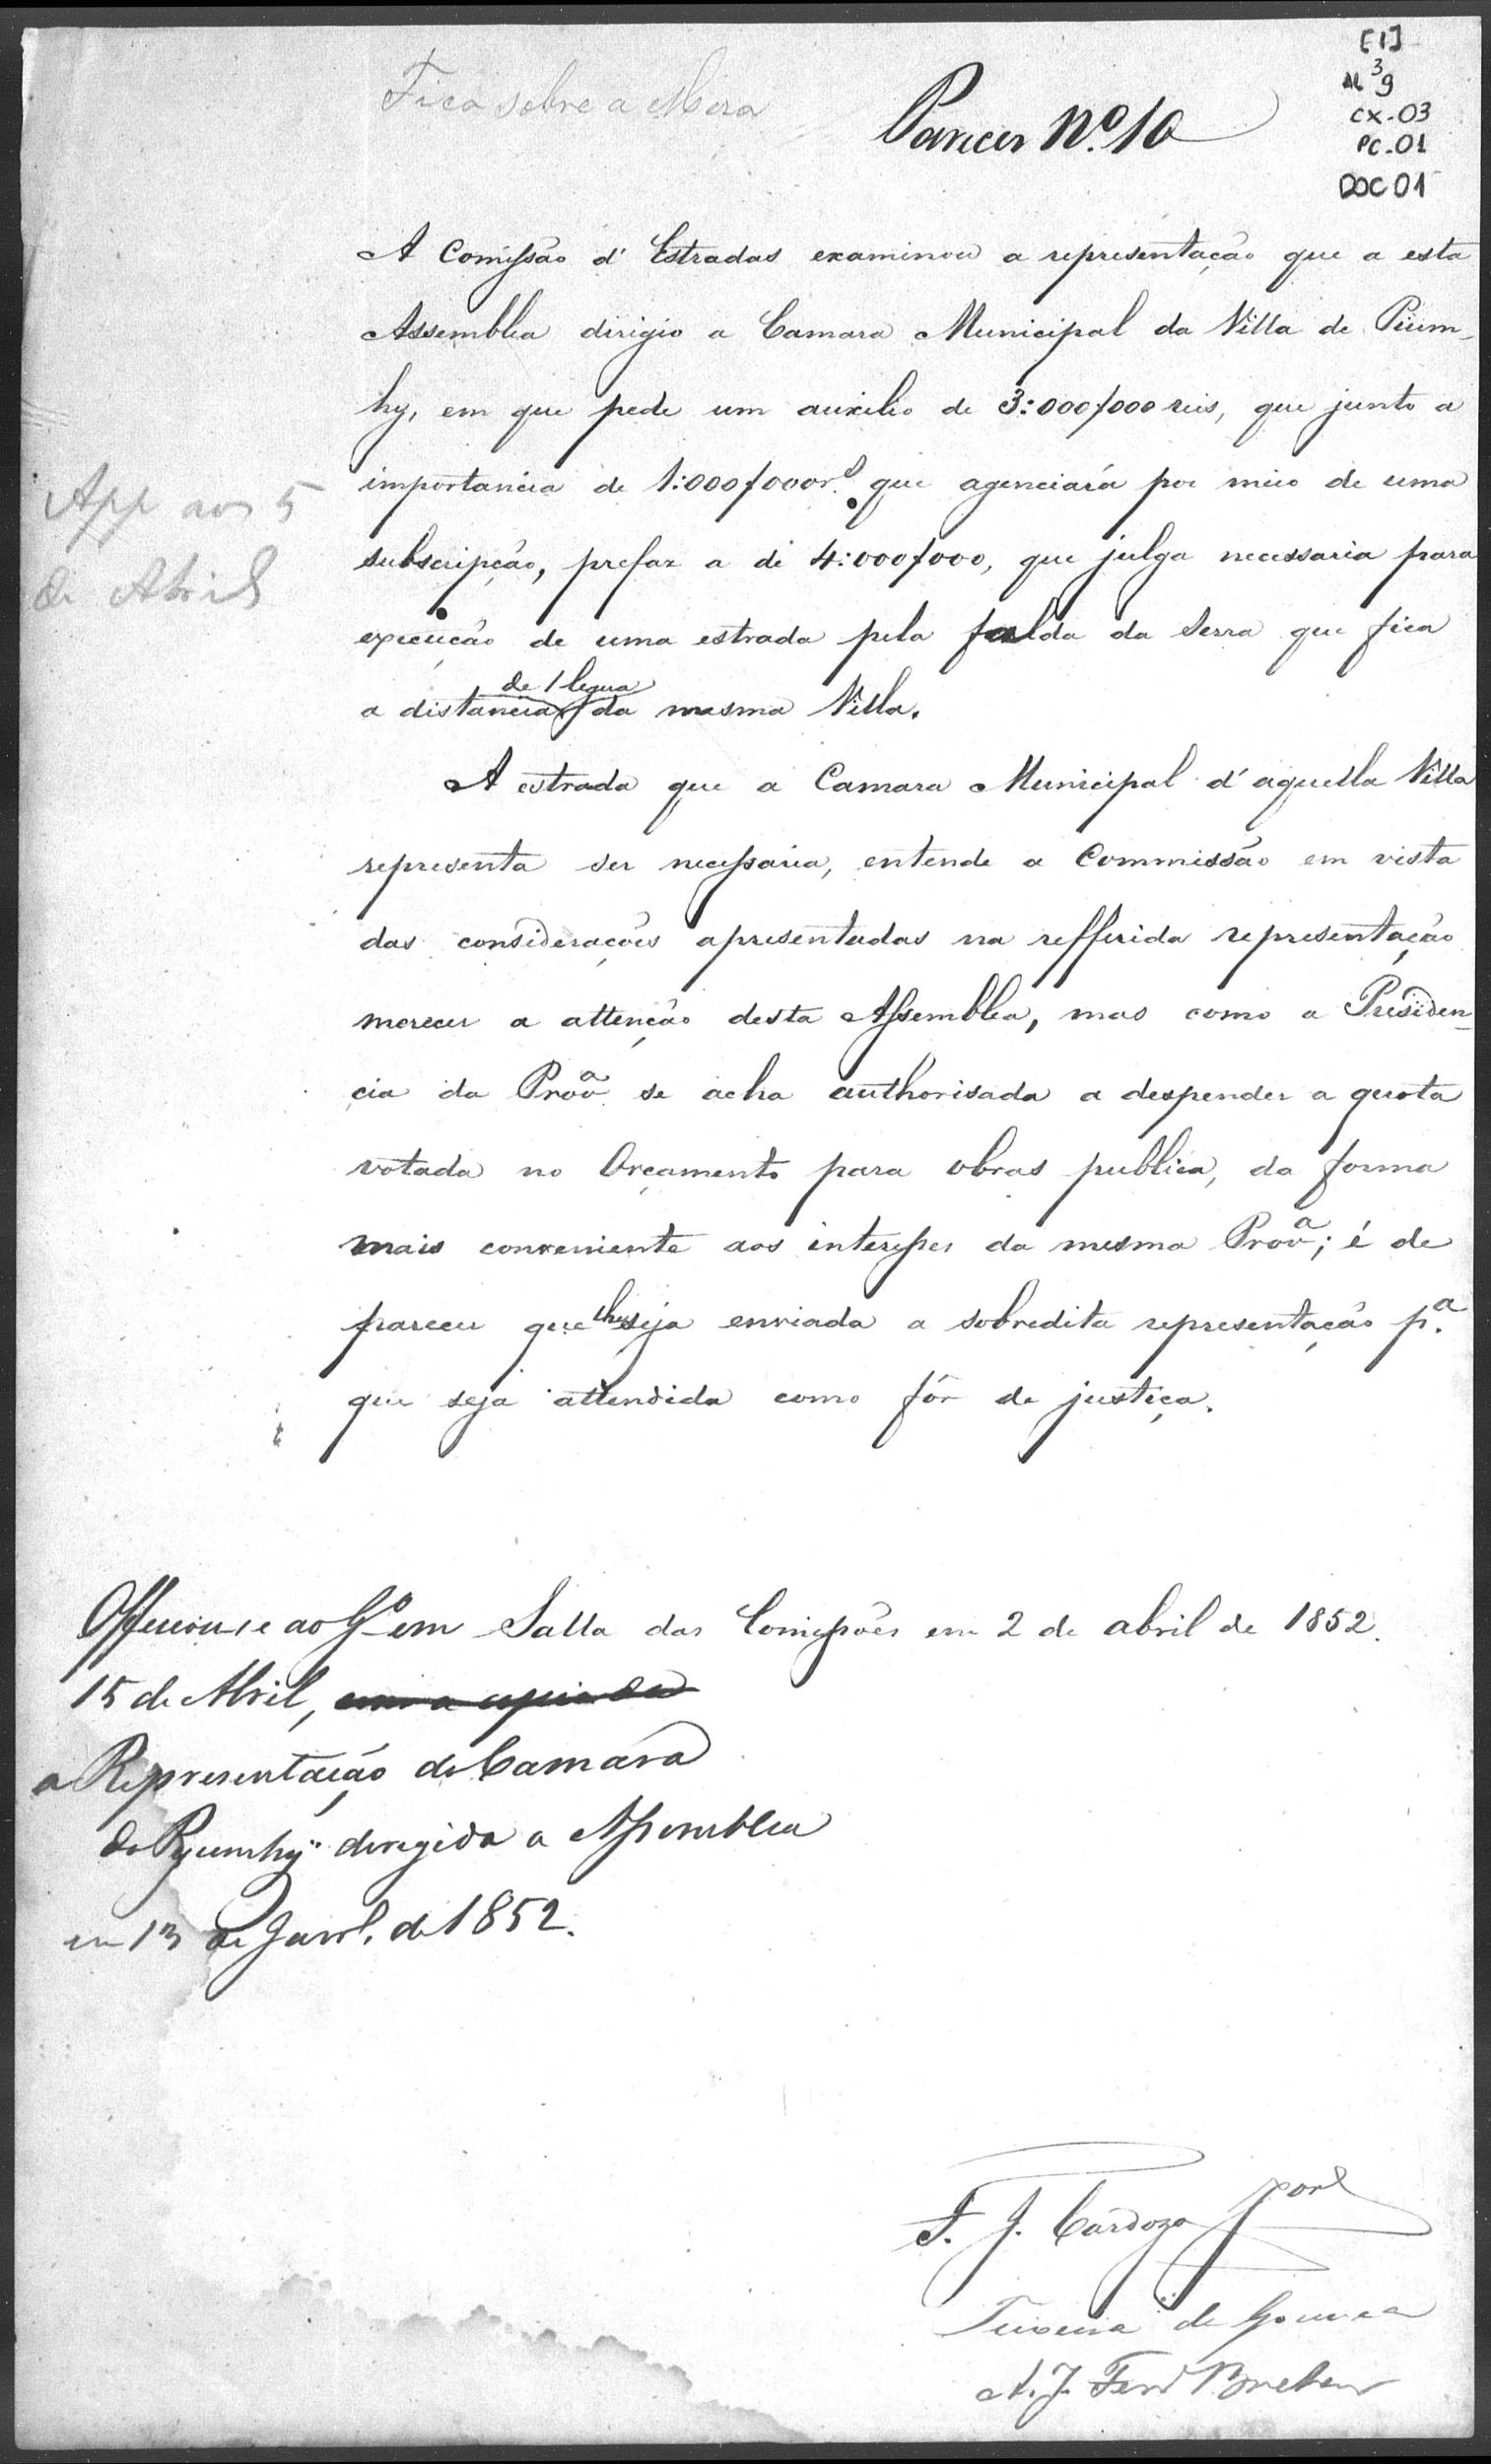 [1]
M 3 9
CX-03
PC-01
DOC 01
Fica sobre a Mesa
Parecer Nº. 10
A Comissão d' Estradas examinou a representação que a esta
Assemblea dirigio a Camara Municipal da Villa de Pium-
hy, em que pede um auxilio de 3:000/000 reis, que junto a
importancia de 1:000/000 rs. que agenciará por meio de uma
subscripção, prefaz a de 4:000/000, que julga necessaria para
execução de uma estrada pela falda da Serra que fica
de 1 legua
a distancia da mesma Villa.
App aos 5
de Abril
A estrada que a Camara Municipal d'aquella Villa
representa ser necessaria, entende a Commissão em vista
das considerações apresentadas na refferida representação
merecer a attenção desta Assemblea, mas como a Presiden-
cia da Provª se acha authorisada a despender a quota
votada no Orçamento para obras publica, da forma
mais conveniente aos interesses da mesma Provª; é de
parecer que lhe seja enviada a sobredita representação p.ª
que seja attendida como fôr de justiça.
Salla das Comissões em 2 de abril de 1852.
Officiou-se ao Gº em
15 de Abril, com a copia da
a Representação da Camara
do Pyumhy dirigida a Assemblea
em 13 de Janr. de 1852.
F. J. Cardozo Jor
Teixeira de Gouvea
A. J. Ferr